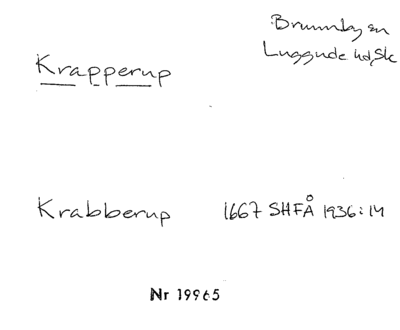 Krapperup
Brunnby sn
Luggude hd, Sk
Krabberup 1667 SHFÅ 1936:14
Nr 19965